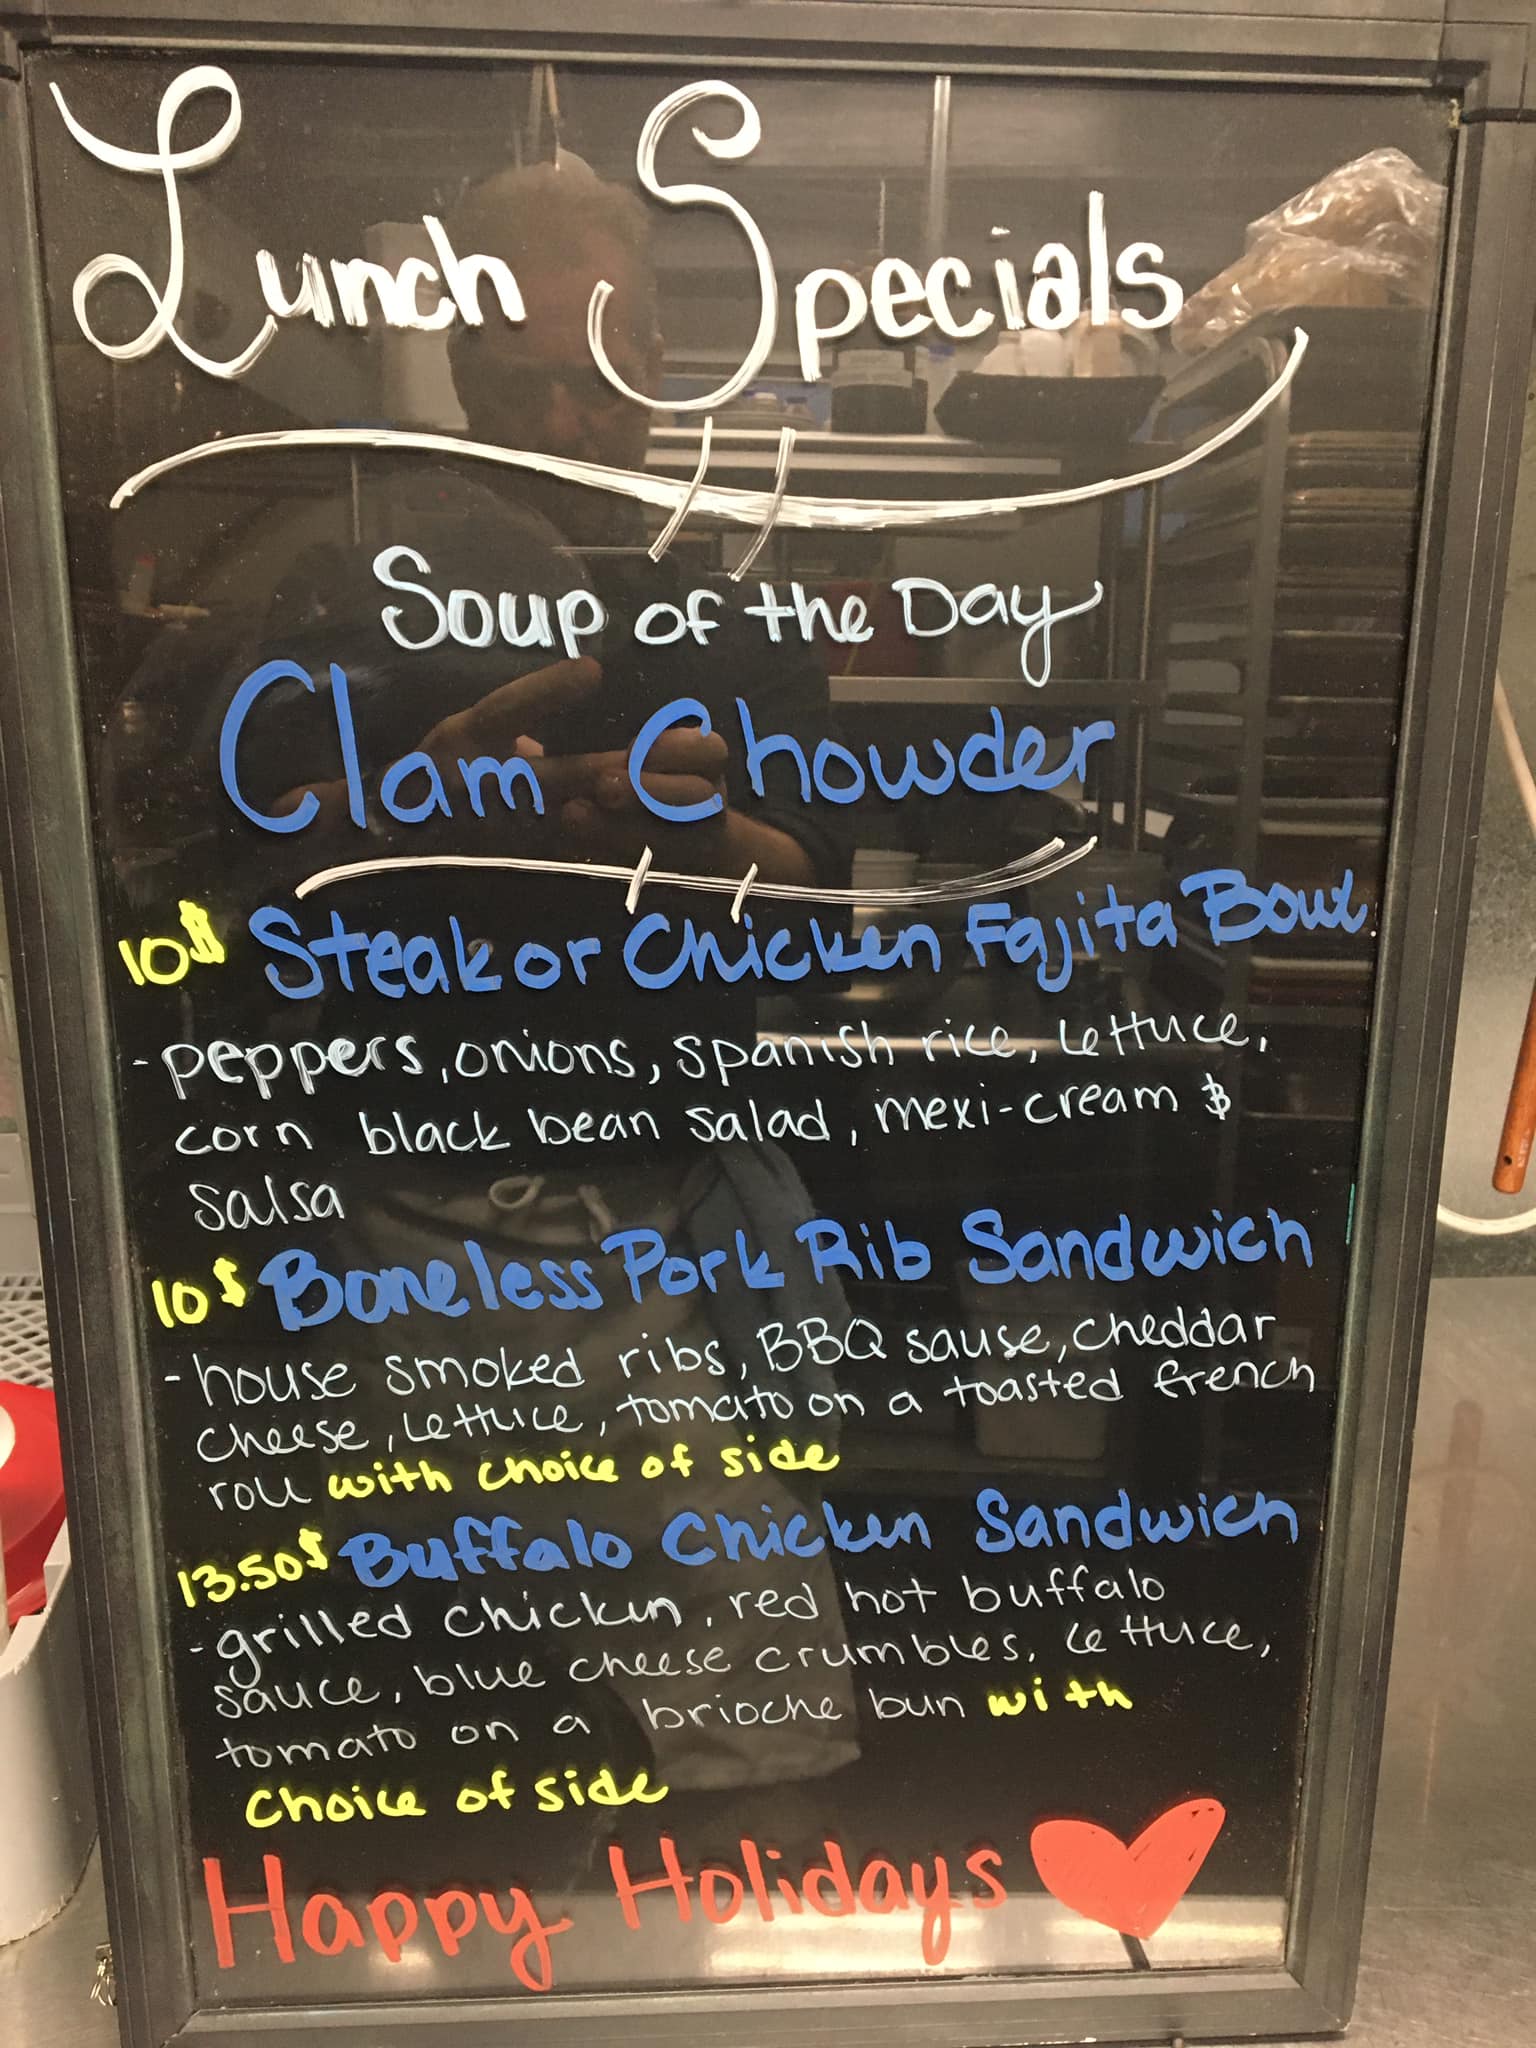 Lunch Specials
Soup of the Day
Clam Chowder
10$ Steak or Chicken Fajita Bowl
- peppers, onions, spanish rice, lettuce,
corn black bean salad, mexi-cream &
salsa
10$ Boneless Pork Rib Sandwich
- house smoked ribs, BBQ sause, cheddar
cheese, lettuce, tomato on a toasted french
roll with choice of side
13.50$ Buffalo Chicken Sandwich
- grilled chicken, red hot buffalo
sauce, blue cheese crumbles, lettuce,
tomato on a brioche bun with
choice of side
Happy Holidays